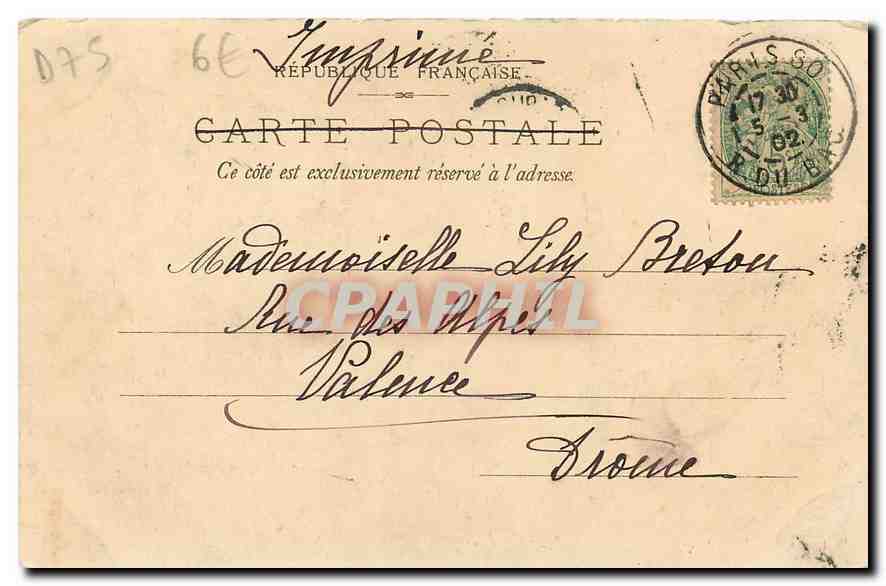 D75
6€
Imprimé
RÉPUBLIQUE FRANÇAISE
CARTE POSTALE
Ce côté est exclusivement réservé à l'adresse.
PARIS-90
17 30
5 -3
02
R. DU BAC
Mademoiselle Lily Breton
CPAPHIL
Rue des Alpes
Valence
Drôme